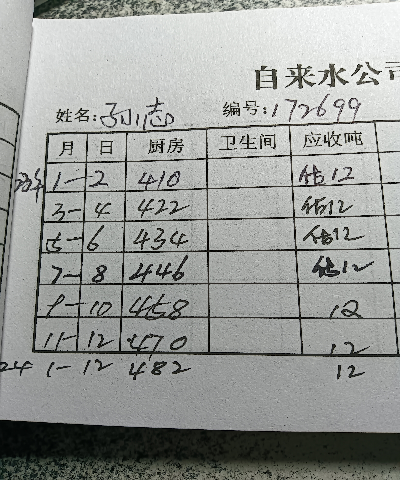 自来水公司
姓名: 孙志 编号: 172699
月 日 厨房 卫生间 应收吨
1-2 410 估12
3-4 422 估12
5-6 434 估12
7-8 446 估12
9-10 458 12
11-12 470 12
24 1-12 482 12